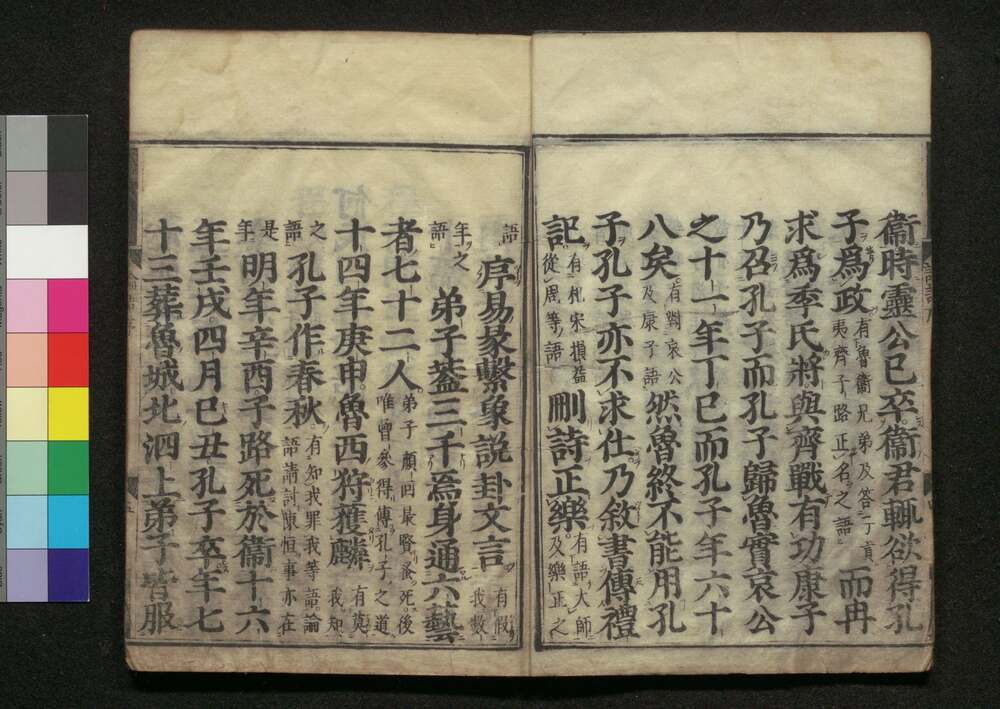 衞時靈公已卒衞君輒欲得孔
子爲政有魯衞兄弟及答子貢夷齊子路正名之語而冉
求爲季氏將與齊戰有功康子
乃召孔子而孔子歸魯實哀公
之十一年丁巳而孔子年六十
八矣有對哀公及康子語然魯終不能用孔
子孔子亦不求仕乃敘書傳禮
記有杞宋損益從周等語刪詩正樂有語大師及樂正之
語序易彖繫象說卦文言有假我數
年之語弟子蓋三千焉身通六藝
者七十二人弟子顏回最賢蚤死後唯曾參得傳孔子之道
十四年庚申魯西狩獲麟有莫我知
之語孔子作春秋有知我罪我等語論語請討陳恒事亦在
是年明年辛酉子路死於衞十六
年壬戌四月己丑孔子卒年七
十三葬魯城北泗上弟子皆服